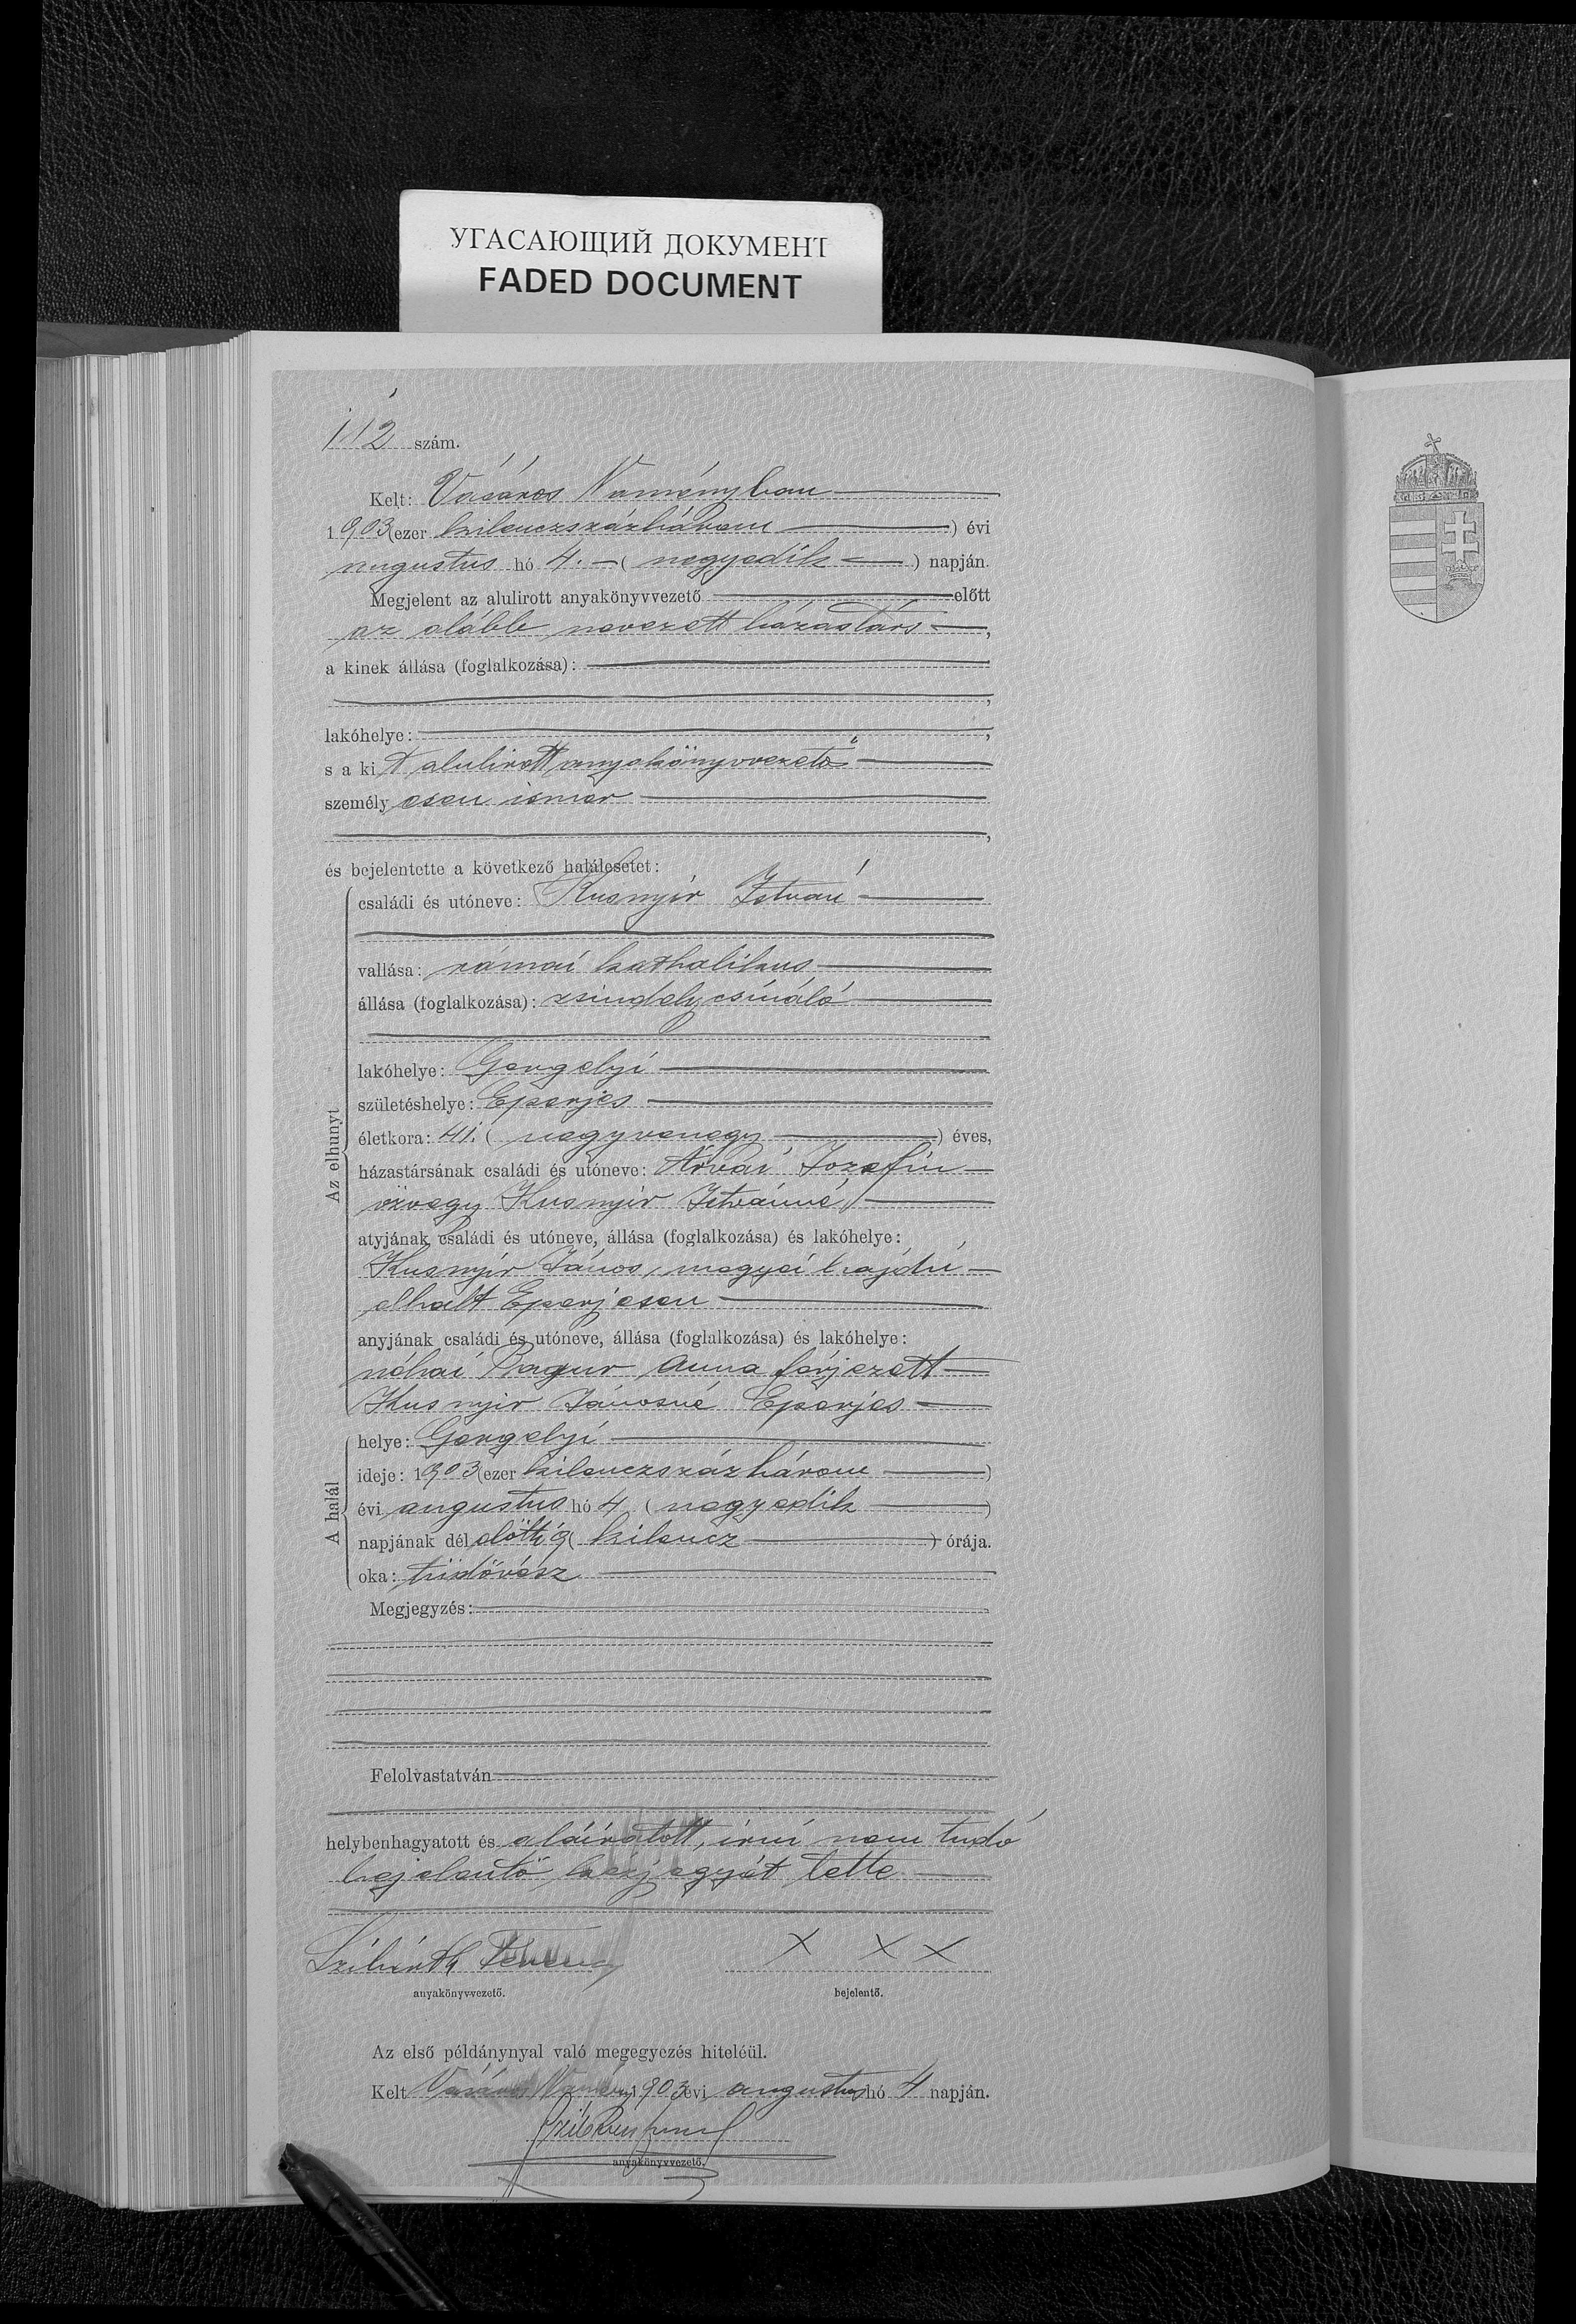 УГАСАЮЩИЙ ДОКУМЕНТ
FADED DOCUMENT
112 szám.
Kelt: Vásáros Naményban
1903 (ezer kilenczszázhárom) évi
augustus hó 4. (negyedik) napján.
Megjelent az alulirott anyakönyvvezető előtt
az alább nevezett házastárs,
a kinek állása (foglalkozása):
lakóhelye:
s a kit alulirott anyakönyvvezető
személyesen ismer
és bejelentette a következő halálesetet:
Az elhunyt
családi és utóneve: Kusnyír István
vallása: római katholikus
állása (foglalkozása): zsindely csináló
lakóhelye: Gergelyi
születéshelye: Eperjes
életkora: 41. (negyvenegy) éves,
házastársának családi és utóneve: Árvai Jozefin
özvegy Kusnyír Istvánné,
atyjának családi és utóneve, állása (foglalkozása) és lakóhelye:
Kusnyír János, megyei hajdú
elhalt Eperjesen
anyjának családi és utóneve, állása (foglalkozása) és lakóhelye:
néhai Anna férjezett
Kusnyír Jánosné Eperjes
A halál
helye: Gergelyi
ideje: 1903 (ezer kilenczszázhárom)
évi augustus hó 4 (negyedik)
napjának dél előtti 9 (kilencz) órája.
oka: tüdővész
Megjegyzés:
Felolvastatván
helybenhagyatott és aláíratott, írni nem tudó
bejelentő kézjegyét tette
Ferencz X X X
anyakönyvvezető. bejelentő.
Az első példánynyal való megegyezés hiteléül.
Kelt Vásáros Namény 1903 évi augustus hó 4 napján.
anyakönyvvezető.